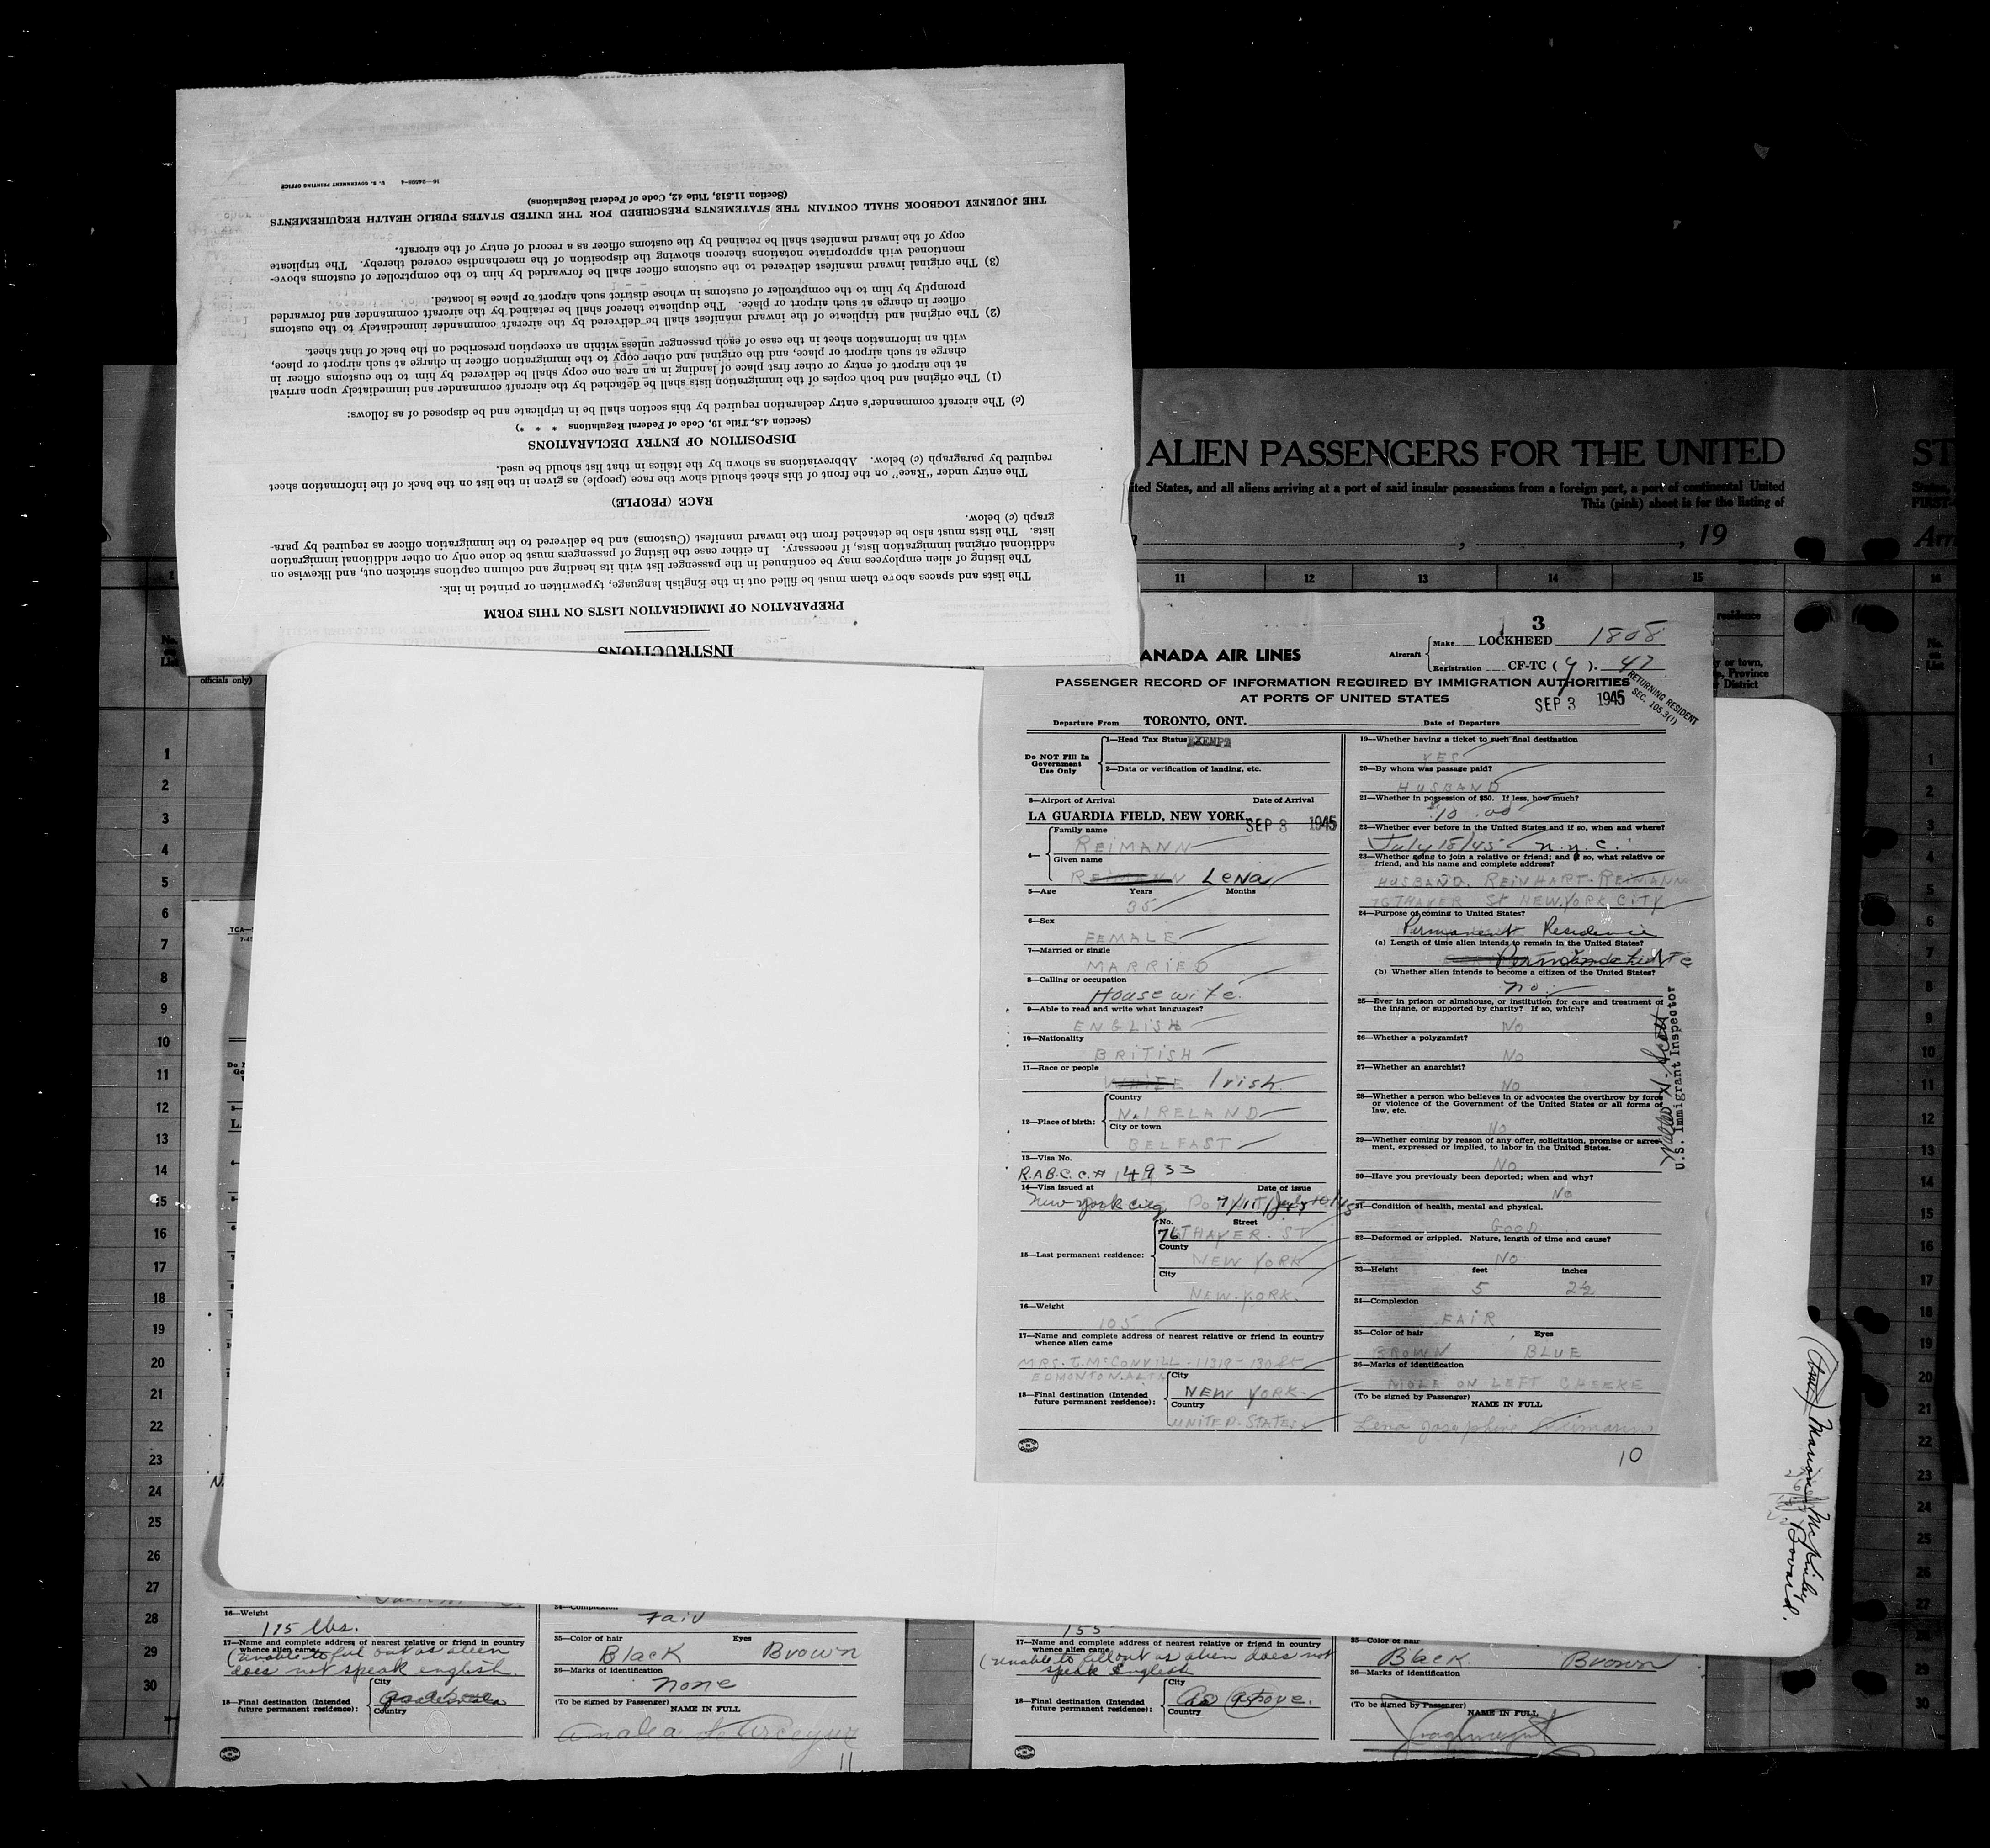 INSTRUCTIONS
PREPARATION OF IMMIGRATION LISTS ON THIS FORM
The lists and spaces above them must be filled out in the English language, typewritten or printed in ink.
The listing of alien employees may be continued in the passenger list with its heading and column captions stricken out, and likewise on
additional original immigration lists, if necessary. In either case the listing of passengers must be done only on other additional immigration
lists. The lists must also be detached from the inward manifest (Customs) and be delivered to the immigration officer as required by para-
graph (c) below.
RACE (PEOPLE)
The entry under "Race" on the front of this sheet should show the race (people) as given in the list on the back of the information sheet
required by paragraph (c) below. Abbreviations as shown by the italics in that list should be used.
DISPOSITION OF ENTRY DECLARATIONS
(Section 4.8, Title 19, Code of Federal Regulations * * *)
(c) The aircraft commander's entry declaration required by this section shall be in triplicate and be disposed of as follows:
(1) The original and both copies of the immigration lists shall be detached by the aircraft commander and immediately upon arrival
at the airport of entry or other first place of landing in an area one copy shall be delivered by him to the customs officer in
charge at such airport or place, and the original and other copy to the immigration officer in charge at such airport or place,
with an information sheet in the case of each passenger unless within an exception prescribed on the back of that sheet.
(2) The original and triplicate of the inward manifest shall be delivered by the aircraft commander immediately to the customs
officer in charge at such airport or place. The duplicate thereof shall be retained by the aircraft commander and forwarded
promptly by him to the comptroller of customs in whose district such airport or place is located.
(3) The original inward manifest delivered to the customs officer shall be forwarded by him to the comptroller of customs above-
mentioned with appropriate notations thereon showing the disposition of the merchandise covered thereby. The triplicate
copy of the inward manifest shall be retained by the customs officer as a record of entry of the aircraft.
THE JOURNEY LOGBOOK SHALL CONTAIN THE STATEMENTS PRESCRIBED FOR THE UNITED STATES PUBLIC HEALTH REQUIREMENTS
(Section 11.513, Title 42, Code of Federal Regulations)
16—24698-4 U. S. GOVERNMENT PRINTING OFFICE
ALIEN PASSENGERS FOR THE UNITED
ST
ited States, and all aliens arriving at a port of said insular possessions from a foreign port, a port of continental United
This (pink) sheet is for the listing of
FIRST-
, 19
Arri
11 12 13 14 15 16
residence
y or town,
Province
District
No.
on
List
officials only)
3
ANADA AIR LINES
Aircraft
Make LOCKHEED 1808
Registration CF-TC (Y). 47
PASSENGER RECORD OF INFORMATION REQUIRED BY IMMIGRATION AUTHORITIES
AT PORTS OF UNITED STATES
RETURNING RESIDENT
SEC. 105.3(1)
SEP 3 1945
Departure From TORONTO, ONT. Date of Departure
Do NOT Fill In
Government
Use Only
1—Head Tax Status EXEMPT
2—Data or verification of landing, etc.
3—Airport of Arrival Date of Arrival
LA GUARDIA FIELD, NEW YORK SEP 3 1945
4—
Family name
REIMANN
Given name
REIMANN Lena
5—Age Years Months
35
6—Sex
FEMALE
7—Married or single
MARRIED
8—Calling or occupation
Housewife
9—Able to read and write what languages?
ENGLISH
10—Nationality
BRITISH
11—Race or people
WHITE Irish
12—Place of birth:
Country
N. IRELAND
City or town
BELFAST
13—Visa No.
R.A.B.C.C.# 14933
14—Visa issued at Date of issue
New York City July 10/45
15—Last permanent residence:
No. Street
76 THAYER. ST
County
NEW YORK
City
NEW-YORK.
16—Weight
105
17—Name and complete address of nearest relative or friend in country
whence alien came
MRS. T. McCONVILL. 11318-130 St
EDMONTON. ALTA
18—Final destination (Intended
future permanent residence):
City
NEW YORK.
Country
UNITED. STATES
19—Whether having a ticket to such final destination
YES
20—By whom was passage paid?
HUSBAND
21—Whether in possession of $50. If less, how much?
$10.00
22—Whether ever before in the United States and if so, when and where?
July 18/45 N.Y.C.
23—Whether going to join a relative or friend; and if so, what relative or
friend, and his name and complete address?
HUSBAND. REINHART. REIMANN
76 THAYER St NEW.YORK CITY
24—Purpose of coming to United States?
Permanent Residence
(a) Length of time alien intends to remain in the United States?
(b) Whether alien intends to become a citizen of the United States?
no.
25—Ever in prison or almshouse, or institution for care and treatment of
the insane, or supported by charity? If so, which?
No
26—Whether a polygamist?
No
27—Whether an anarchist?
No
28—Whether a person who believes in or advocates the overthrow by force
or violence of the Government of the United States or all forms of
law, etc.
No
29—Whether coming by reason of any offer, solicitation, promise or agree-
ment, expressed or implied, to labor in the United States.
No
30—Have you previously been deported; when and why?
No
31—Condition of health, mental and physical.
GOOD
32—Deformed or crippled. Nature, length of time and cause?
No
33—Height feet inches
5 2½
34—Complexion
FAIR
35—Color of hair Eyes
BROWN BLUE
36—Marks of identification
MOLE ON LEFT CHEEKE
(To be signed by Passenger)
NAME IN FULL
Lena Josephine Reimann
10
U.S. Immigrant Inspector
TCA—
7-45
1
2
3
4
5
6
7
8
9
10
11
12
13
14
15
16
17
18
19
20
21
22
23
24
25
26
27
28
29
30
16—Weight
115 lbs.
17—Name and complete address of nearest relative or friend in country
whence alien came
(unable to fill out as alien
does not speak english.
18—Final destination (Intended
future permanent residence):
City
Country
34—Complexion
Fair
35—Color of hair Eyes
Black Brown
36—Marks of identification
none
(To be signed by Passenger)
NAME IN FULL
11
155
17—Name and complete address of nearest relative or friend in country
whence alien came
(unable to fill out as alien does not
speak English
18—Final destination (Intended
future permanent residence):
City
As above.
Country
35—Color of hair
Black Brown
36—Marks of identification
(To be signed by Passenger)
NAME IN FULL